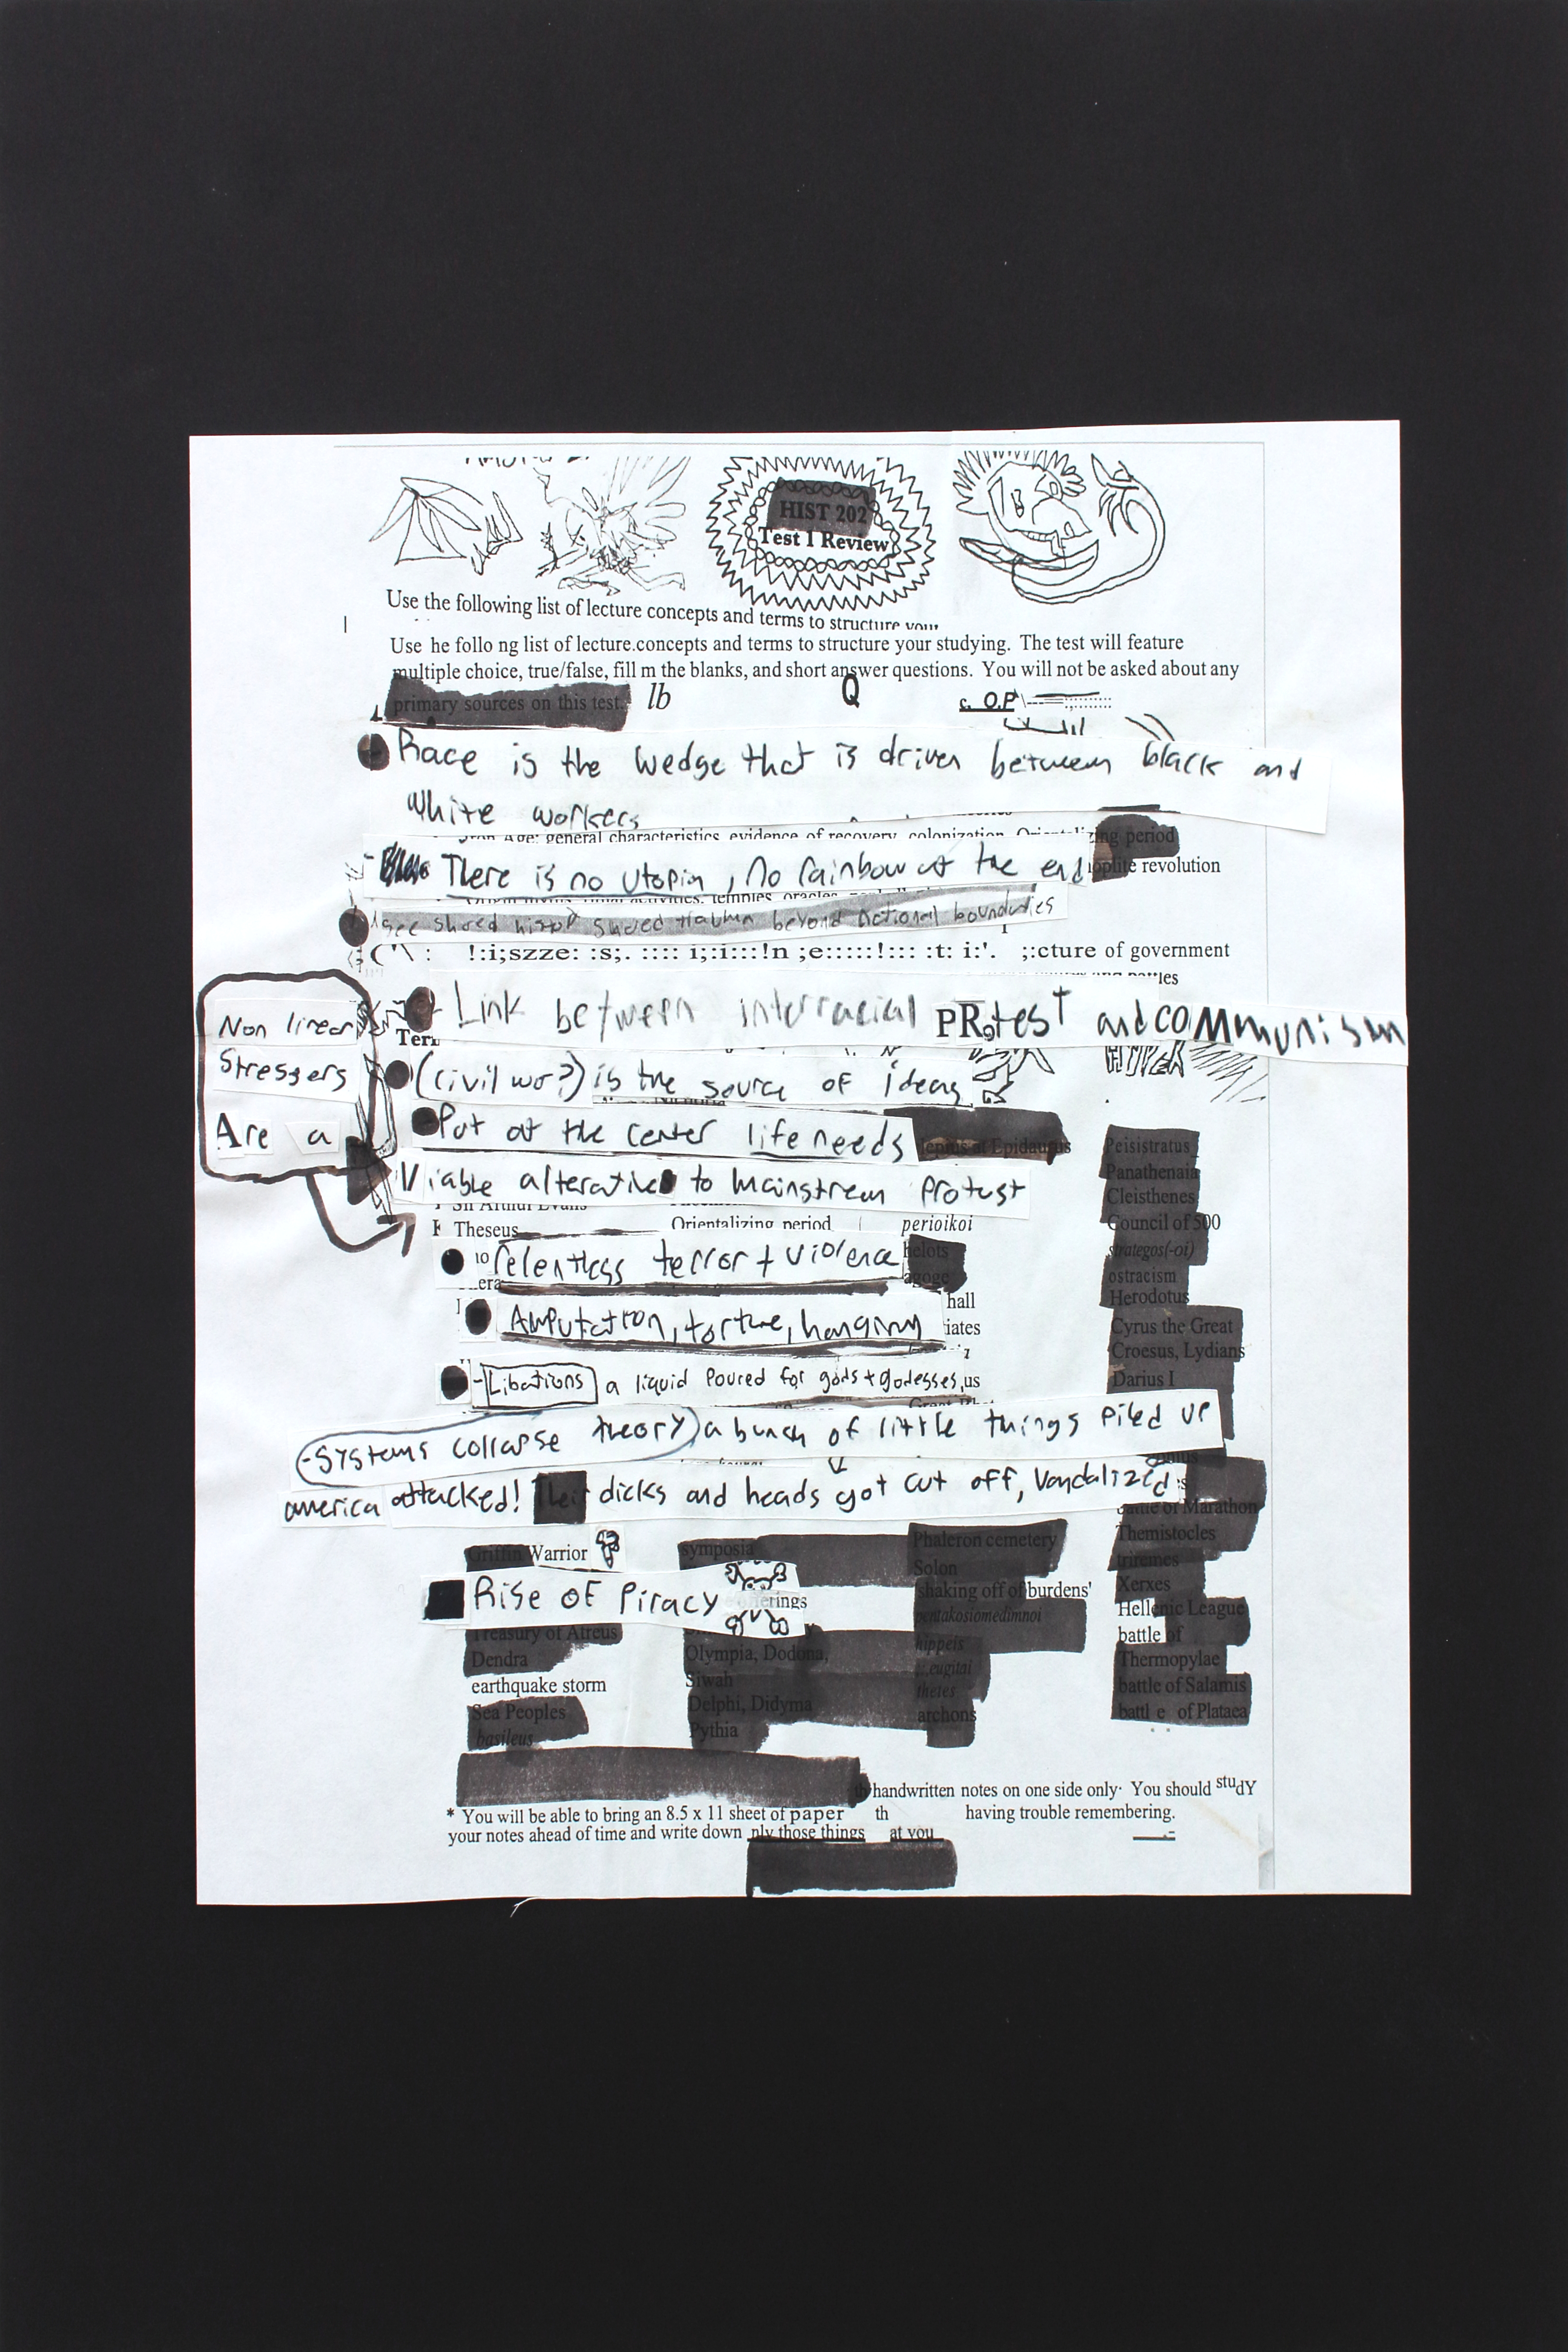 HIST 202
Test 1 Review
Use the following list of lecture concepts and terms to structure your
Use he follo ng list of lecture.concepts and terms to structure your studying. The test will feature
multiple choice, true/false, fill m the blanks, and short answer questions. You will not be asked about any
primary sources on this test. lb Q c. O.P
Race is the wedge that is driven between black and
white workers
Age: general characteristics, evidence of recovery, colonization, Orientalizing period
There is no utopia, no rainbow at the end hoplite revolution
temples, oracles,
shared beyond national boundaries
!:i;szze: :s;. :::: i;:i:::!n ;e:::::!::: :t: i:'. ;:cture of government
Link between interracial PRotesT and coMMunism
Non linear
Stressers
Are a
(civil wo?) is the source of ideas
Put at the center life needs at Epidaurus
Viable alterative to mainstream Protust
Sir Arthur Evans
Theseus Orientalizing period perioikoi
relentless terror + violence helots
agoge
Amputation, torture, hanging
hall
iates
-Libations a liquid Poured for gods + godesses, us
-Systems collapse theory) a bunch of little things Piled up
america attacked! Their dicks and heads got cut off, Vandalized
Griffin Warrior
Rise OF Piracy erings
Treasury of Atreus
Dendra
earthquake storm
Sea Peoples
basileus
symposia
Olympia, Dodona,
Siwah
Delphi, Didyma
Pythia
Phaleron cemetery
Solon
shaking off of burdens'
pentakosiomedimnoi
hippeis
:,eugitai
thetes
archons
Peisistratus
Panathenaia
Cleisthenes
Council of 500
strategos(-oi)
ostracism
Herodotus
Cyrus the Great
Croesus, Lydians
Darius I
Battle of Marathon
Themistocles
triremes
Xerxes
Hellenic League
battle of
Thermopylae
battle of Salamis
battl e of Plataea
th handwritten notes on one side only· You should studY
* You will be able to bring an 8.5 x 11 sheet of paper th having trouble remembering.
your notes ahead of time and write down nly those things at you